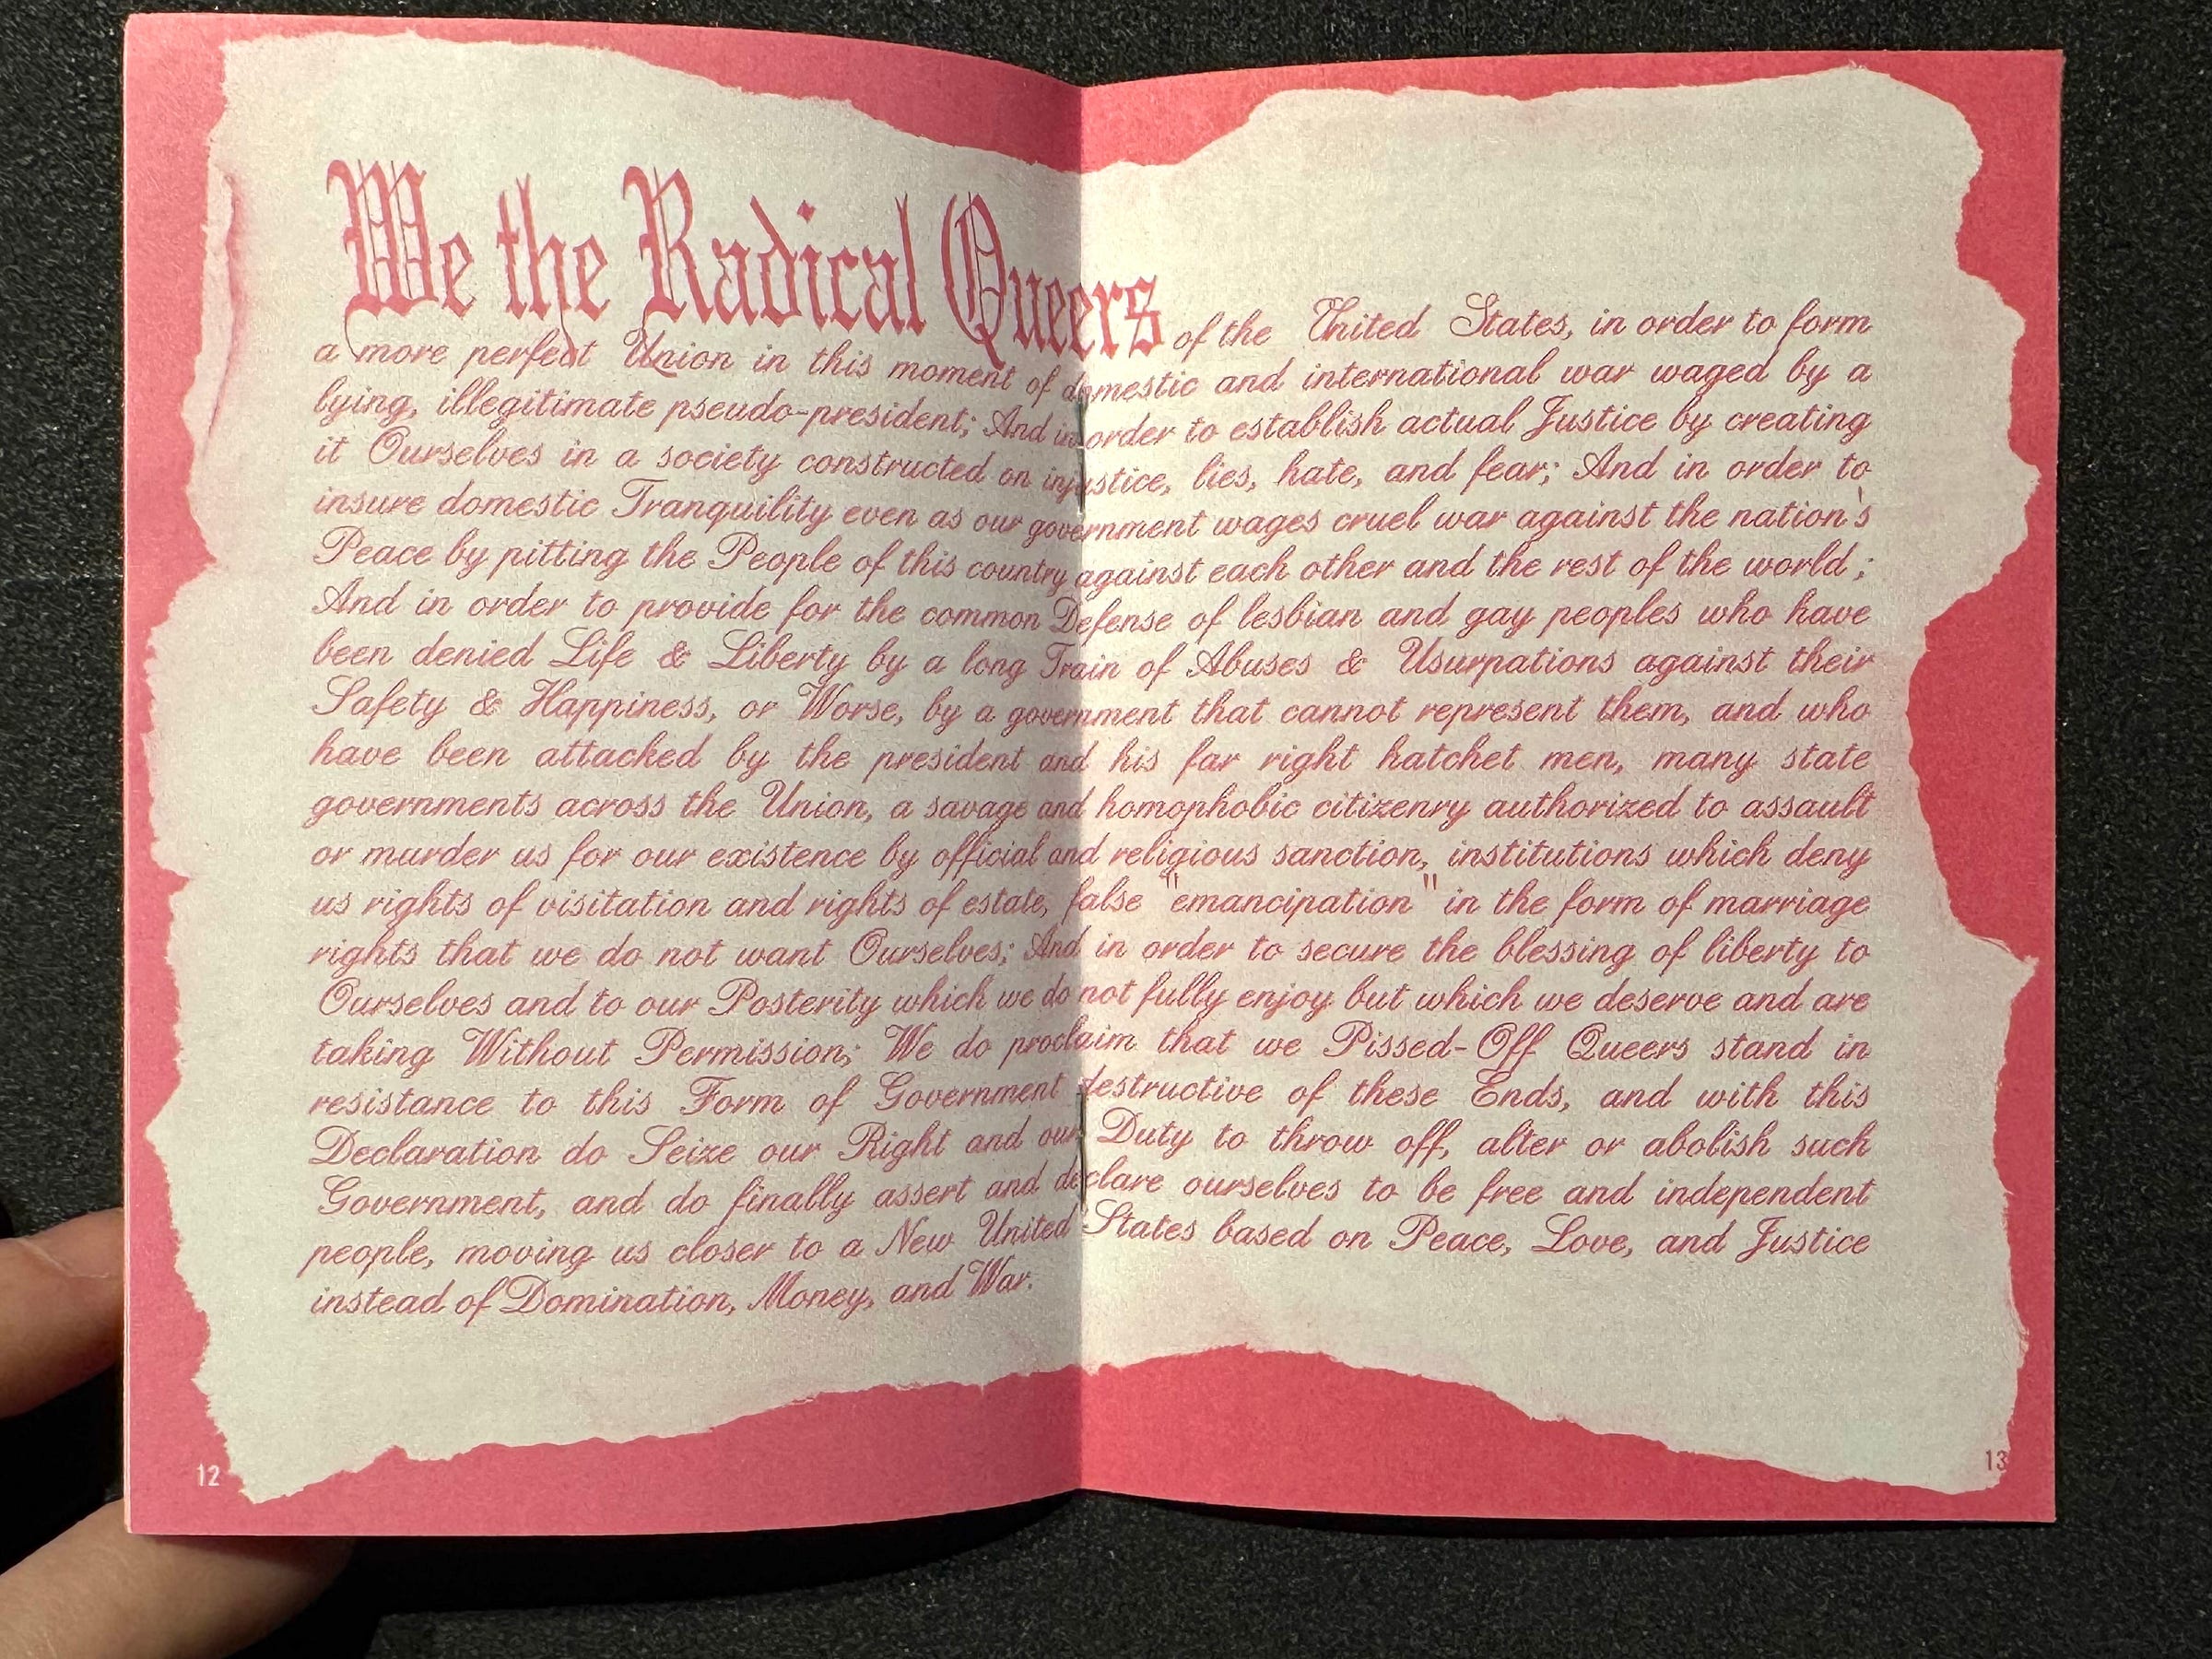 We the Radical Queers of the United States, in order to form
a more perfect Union in this moment of domestic and international war waged by a
lying, illegitimate pseudo-president; And in order to establish actual Justice by creating
it Ourselves in a society constructed on injustice, lies, hate, and fear; And in order to
insure domestic Tranquility even as our government wages cruel war against the nation's
Peace by pitting the People of this country against each other and the rest of the world ;
And in order to provide for the common Defense of lesbian and gay peoples who have
been denied Life & Liberty by a long Train of Abuses & Usurpations against their
Safety & Happiness, or Worse, by a government that cannot represent them, and who
have been attacked by the president and his far right hatchet men, many state
governments across the Union, a savage and homophobic citizenry authorized to assault
or murder us for our existence by official and religious sanction, institutions which deny
us rights of visitation and rights of estate, false "emancipation" in the form of marriage
rights that we do not want Ourselves; And in order to secure the blessing of liberty to
Ourselves and to our Posterity which we do not fully enjoy but which we deserve and are
taking Without Permission; We do proclaim that we Pissed-Off Queers stand in
resistance to this Form of Government destructive of these Ends, and with this
Declaration do Seize our Right and our Duty to throw off, alter or abolish such
Government, and do finally assert and declare ourselves to be free and independent
people, moving us closer to a New United States based on Peace, Love, and Justice
instead of Domination, Money, and War.
12
13